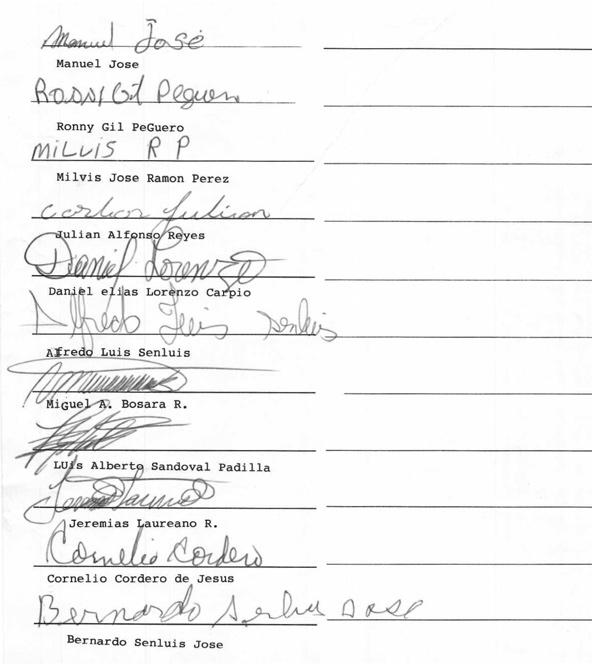 Manuel José
Manuel Jose
Gil Peguero
Ronny Gil PeGuero
MiLVIS R P
Milvis Jose Ramon Perez
Julian
Julian Alfonso Reyes
Daniel Lorenzo
Daniel elias Lorenzo Carpio
Alfredo Luis Senluis
Alfredo Luis Senluis
Miguel A. Bosara R.
LUis Alberto Sandoval Padilla
Jeremias Laureano R.
Cornelio Cordero
Cornelio Cordero de Jesus
Bernardo Senluis Jose
Bernardo Senluis Jose